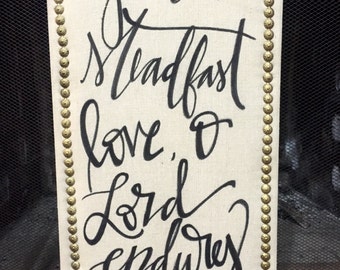 steadfast
love, o
Lord
endures